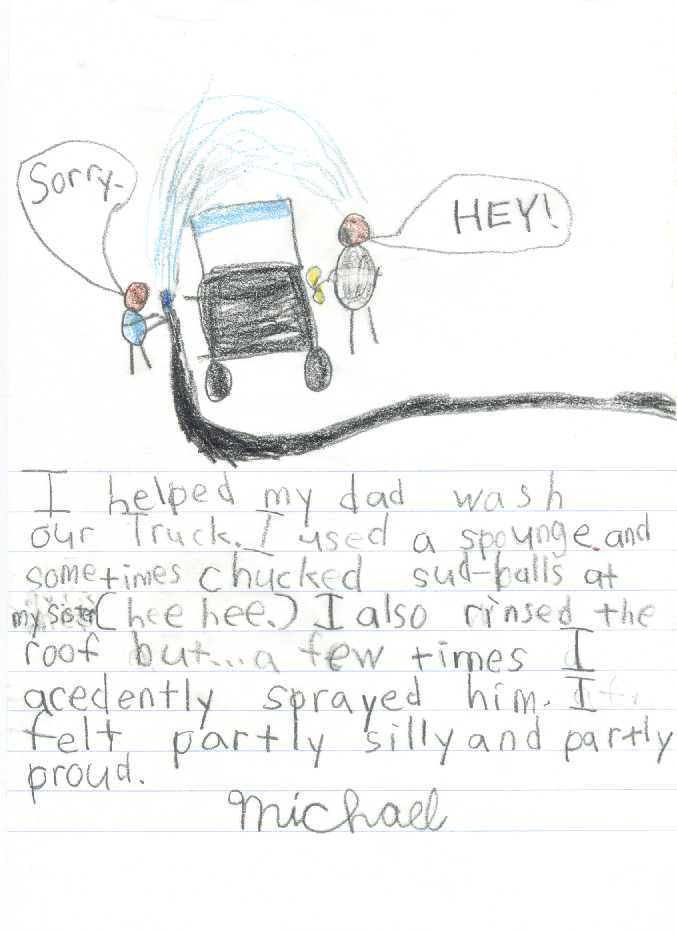 Sorry-
HEY!
I helped my dad wash
our Truck. I used a spounge and
sometimes chucked sud-balls at
my sister (hee hee.) I also rinsed the
roof but... a few times I
acedently sprayed him. I
felt partly silly and partly
proud.
Michael